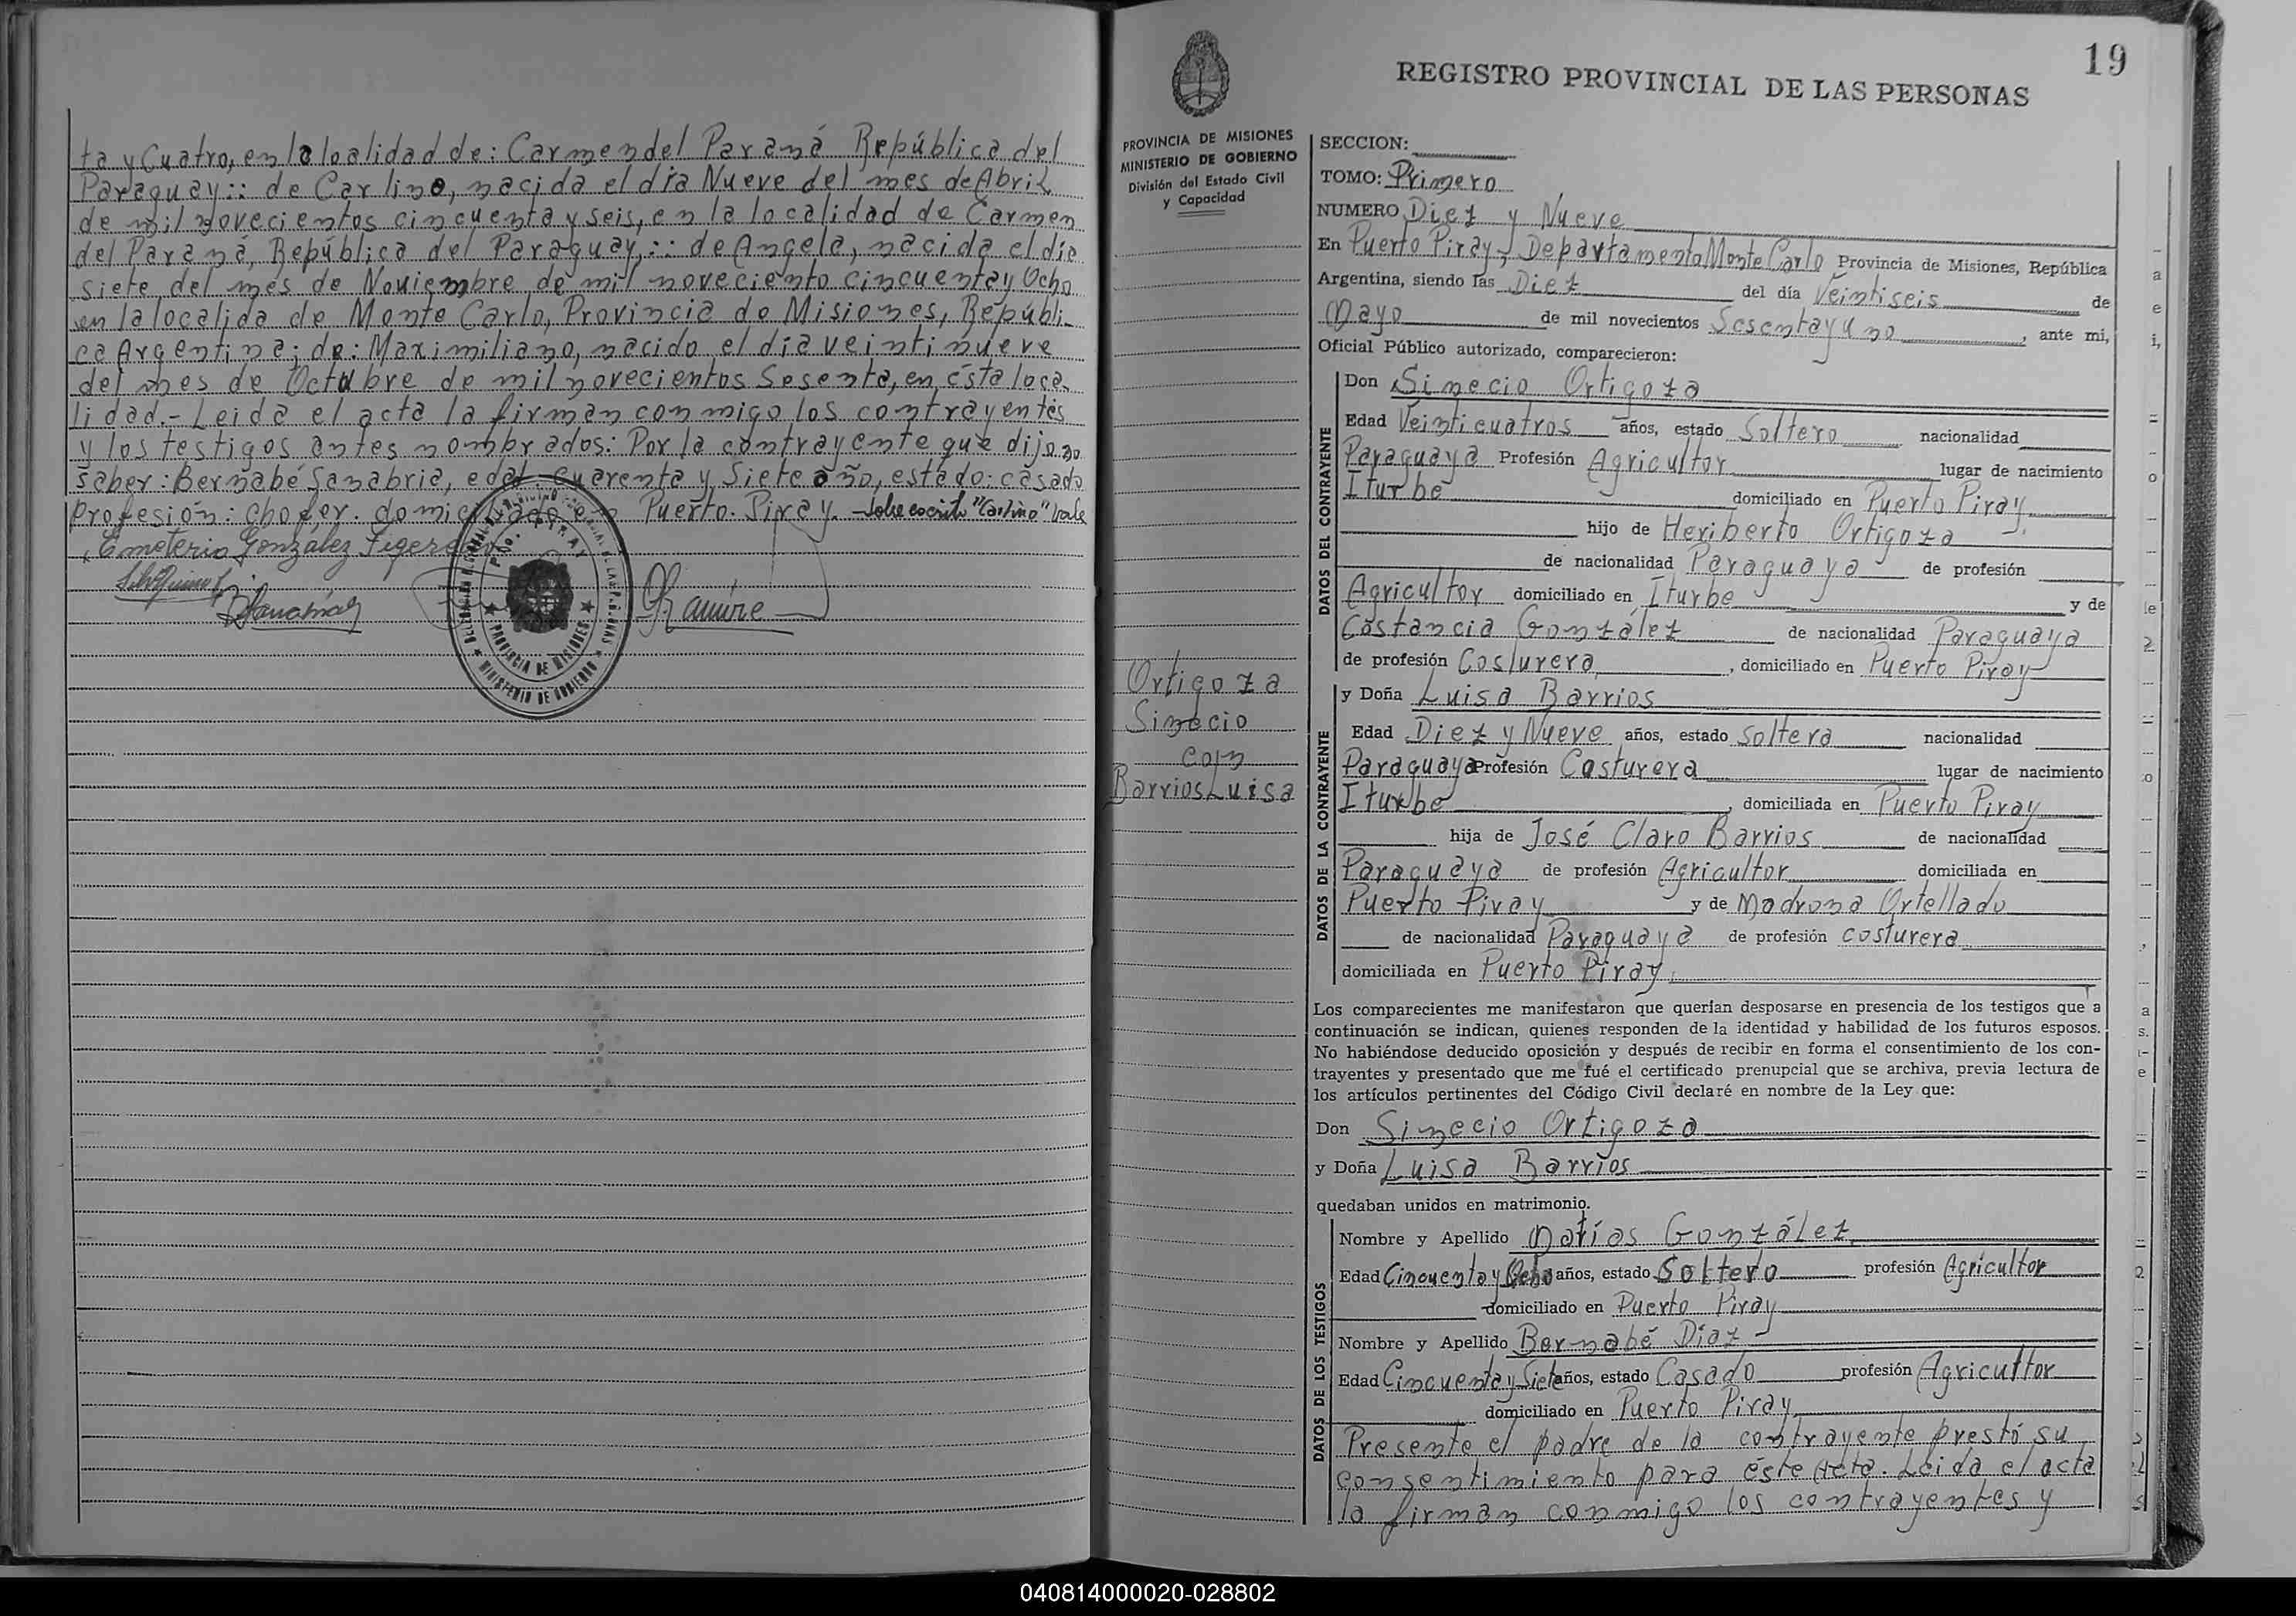 ta y Cuatro, en la loalidad de: Carmen del Paraná República del
Paraguay:: de Carlino, nacida el día Nueve del mes de Abril
de mil novecientos cincuenta y seis, en la localidad de Carmen
del Paraná, República del Paraguay,:: de Angela, nacida el día
siete del més de Noviembre de mil noveciento cincuenta y Ocho
en la localida de Monte Carlo, Provincia de Misiones, Repúbli-
ca Argentina; de: Maximiliano, nacido el día veintinueve
del mes de Octubre de mil novecientos Sesenta, en ésta loca-
lidad.- Leida el acta la firman conmigo los contrayentes
y los testigos antes nombrados: Por la contrayente que dijo no
saber: Bernabé Sanabria, edad cuarenta y Siete año, estado: casado
profesión: chofer. domiciliado en Puerto. Piray. -Sobre escrito "Carlino" vale
Emeterio González Figeredo
Ramire
PROVINCIA DE MISIONES
MINISTERIO DE GOBIERNO
19
REGISTRO PROVINCIAL DE LAS PERSONAS
PROVINCIA DE MISIONES
MINISTERIO DE GOBIERNO
División del Estado Civil
y Capacidad
Ortigoza
Sinecio
con
Barrios Luisa
SECCION:
TOMO: Primero
NUMERO Diez y Nueve
En Puerto Piray, Departamento Monte Carlo Provincia de Misiones, República
Argentina, siendo las Diez del día Veintiseis de
Mayo de mil novecientos Sesenta y uno, ante mi,
Oficial Público autorizado, comparecieron:
DATOS DEL CONTRAYENTE
Don Sinecio Ortigoza
Edad Veinticuatros años, estado Soltero nacionalidad
Paraguaya Profesión Agricultor lugar de nacimiento
Iturbe domiciliado en Puerto Piray,
hijo de Heriberto Ortigoza
de nacionalidad Paraguaya de profesión
Agricultor domiciliado en Iturbe y de
Costancia González de nacionalidad Paraguaya
de profesión Costurera, domiciliado en Puerto Piray
DATOS DE LA CONTRAYENTE
y Doña Luisa Barrios
Edad Diez y Nueve años, estado soltera nacionalidad
Paraguaya Profesión Costurera lugar de nacimiento
Iturbe, domiciliada en Puerto Piray
hija de José Claro Barrios de nacionalidad
Paraguaya de profesión Agricultor domiciliada en
Puerto Piray y de Madrona Ortellado
de nacionalidad Paraguaya de profesión costurera
domiciliada en Puerto Piray,
Los comparecientes me manifestaron que querían desposarse en presencia de los testigos que a
continuación se indican, quienes responden de la identidad y habilidad de los futuros esposos.
No habiéndose deducido oposición y después de recibir en forma el consentimiento de los con-
trayentes y presentado que me fué el certificado prenupcial que se archiva, previa lectura de
los artículos pertinentes del Código Civil declaré en nombre de la Ley que:
Don Sinecio Ortigoza
y Doña Luisa Barrios
quedaban unidos en matrimonio.
DATOS DE LOS TESTIGOS
Nombre y Apellido Matías González
Edad Cincuenta y Ocho años, estado Soltero profesión Agricultor
domiciliado en Puerto Piray
Nombre y Apellido Bernabé Diaz
Edad Cincuenta y Siete años, estado Casado profesión Agricultor
domiciliado en Puerto Piray,
Presente el padre de la contrayente prestó su
consentimiento para éste Acto. Leida el acta
la firman conmigo los contrayentes y
040814000020-028802